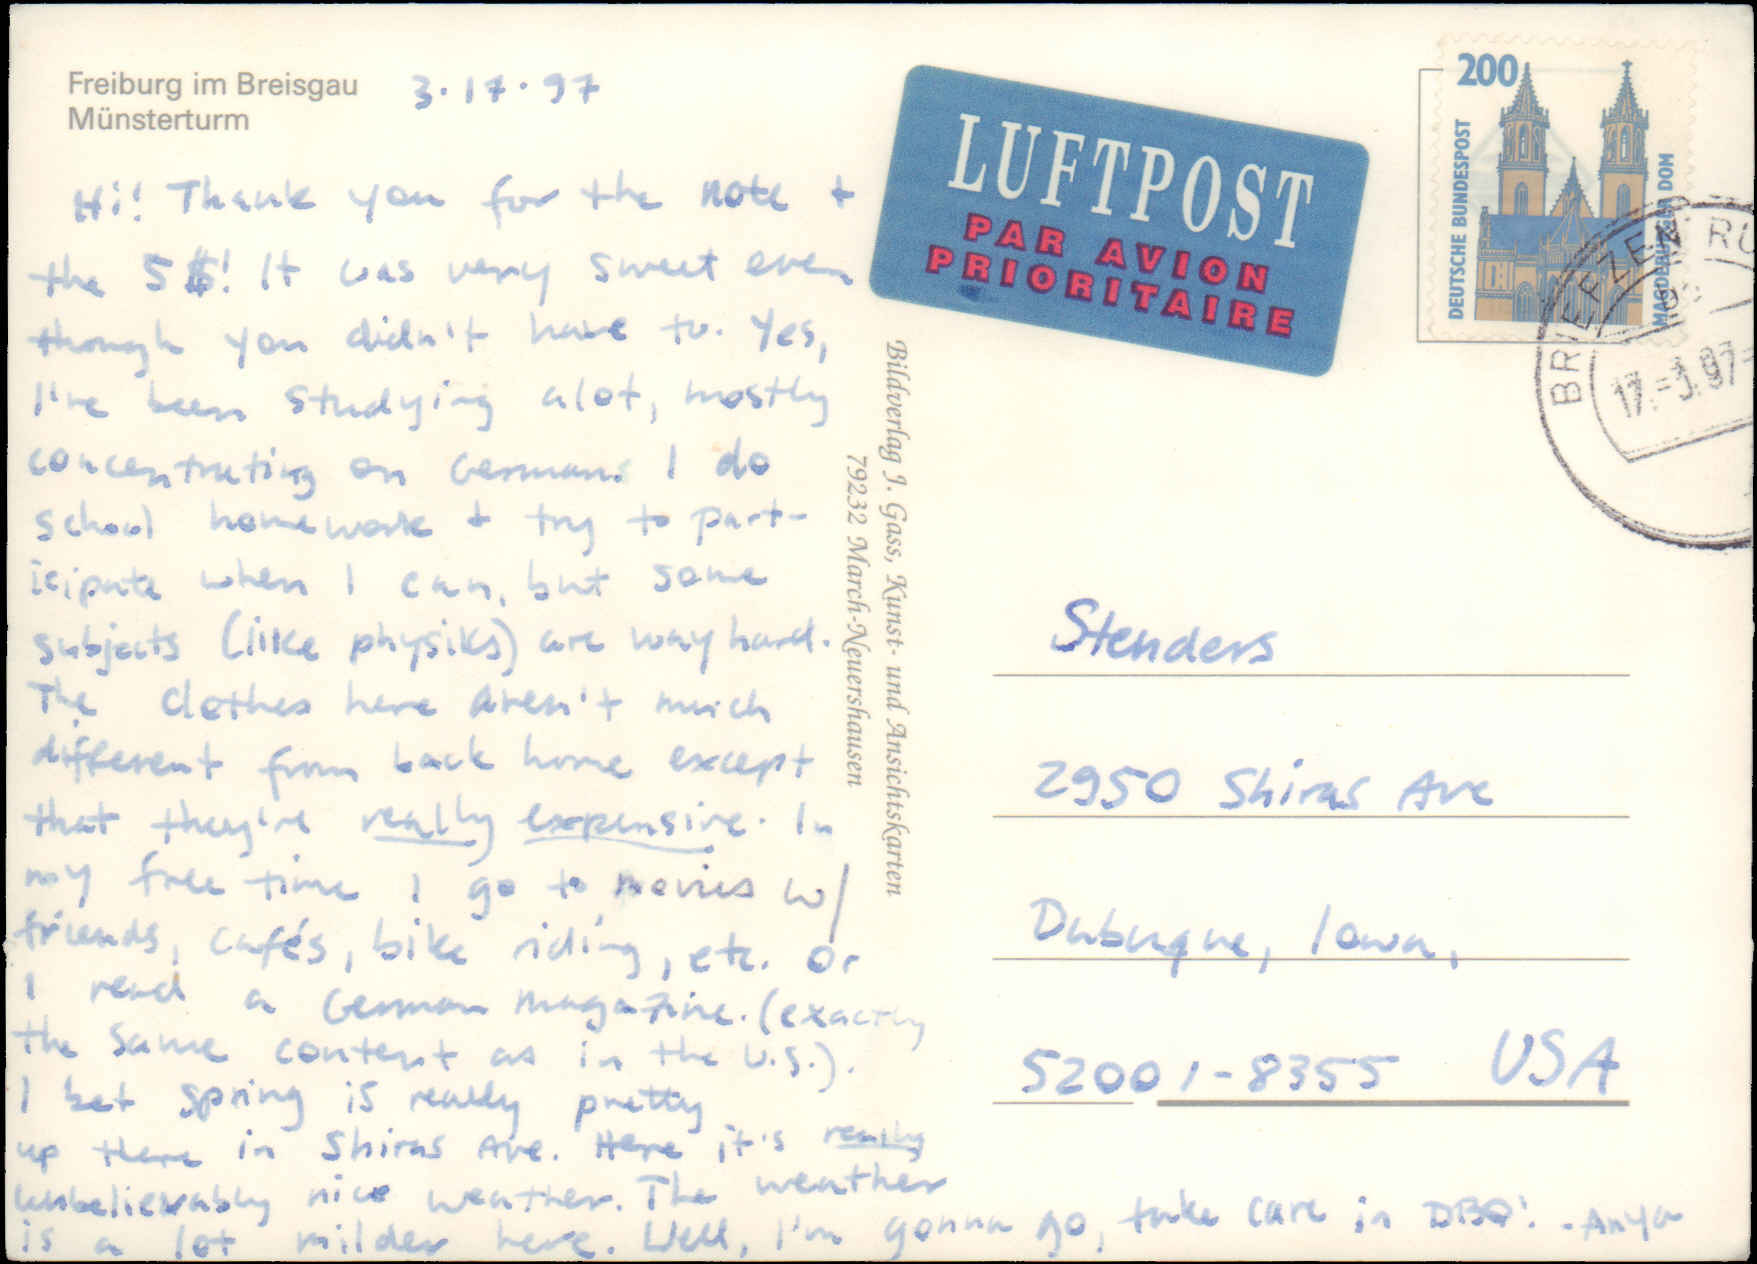 Freiburg im Breisgau
Münsterturm
3.17.97
Hi! Thank you for the note +
the 5$! It was very sweet even
though you didn't have to. Yes,
I've been studying alot, mostly
concentrating on German. I do
school homework + try to part-
icipate when I can, but some
subjects (like physiks) are way hard.
The clothes here aren't much
different from back home except
that they're really expensive. In
my free time I go to movies w/
friends, cafés, bike riding, etc. Or
I read a German magazine. (exactly
the same content as in the U.S.).
I bet spring is really pretty
up there in Shiras Ave. Here it's really
unbelievably nice weather. The weather
is a lot milder here. Well, I'm gonna go, take care in DBQ! -Anya
Bildverlag J. Gass, Kunst- und Ansichtskarten
79232 March-Neuershausen
LUFTPOST
PAR AVION
PRIORITAIRE
200
DEUTSCHE BUNDESPOST
MAGDEBURGER DOM
BRIEFZENTRU
17.-3.97-
Stenders
2950 Shiras Ave
Dubuque, Iowa,
52001-8355 USA